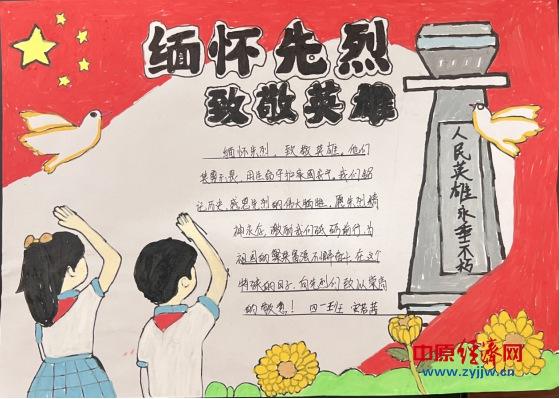 缅怀先烈
致敬英雄
缅怀先烈，致敬英雄。他们
英勇不畏，用生命守护家国安宁。我们铭
记历史，感恩先烈的伟大牺牲，愿先烈精
神永存，激励我们砥砺前行，为
祖国的繁荣富强不懈奋斗，在这个
特殊的日子，向先烈们致以崇高
的敬意！ 四一班
人民英雄永垂不朽
中原经济网
www.zyjjw.cn